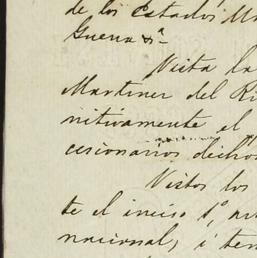 de los Estados
Guerra &ª
Vista la
Martinez del
nitivamente el
cesionarios dichos
Vistos los
te el inciso 1º,
nacional, i